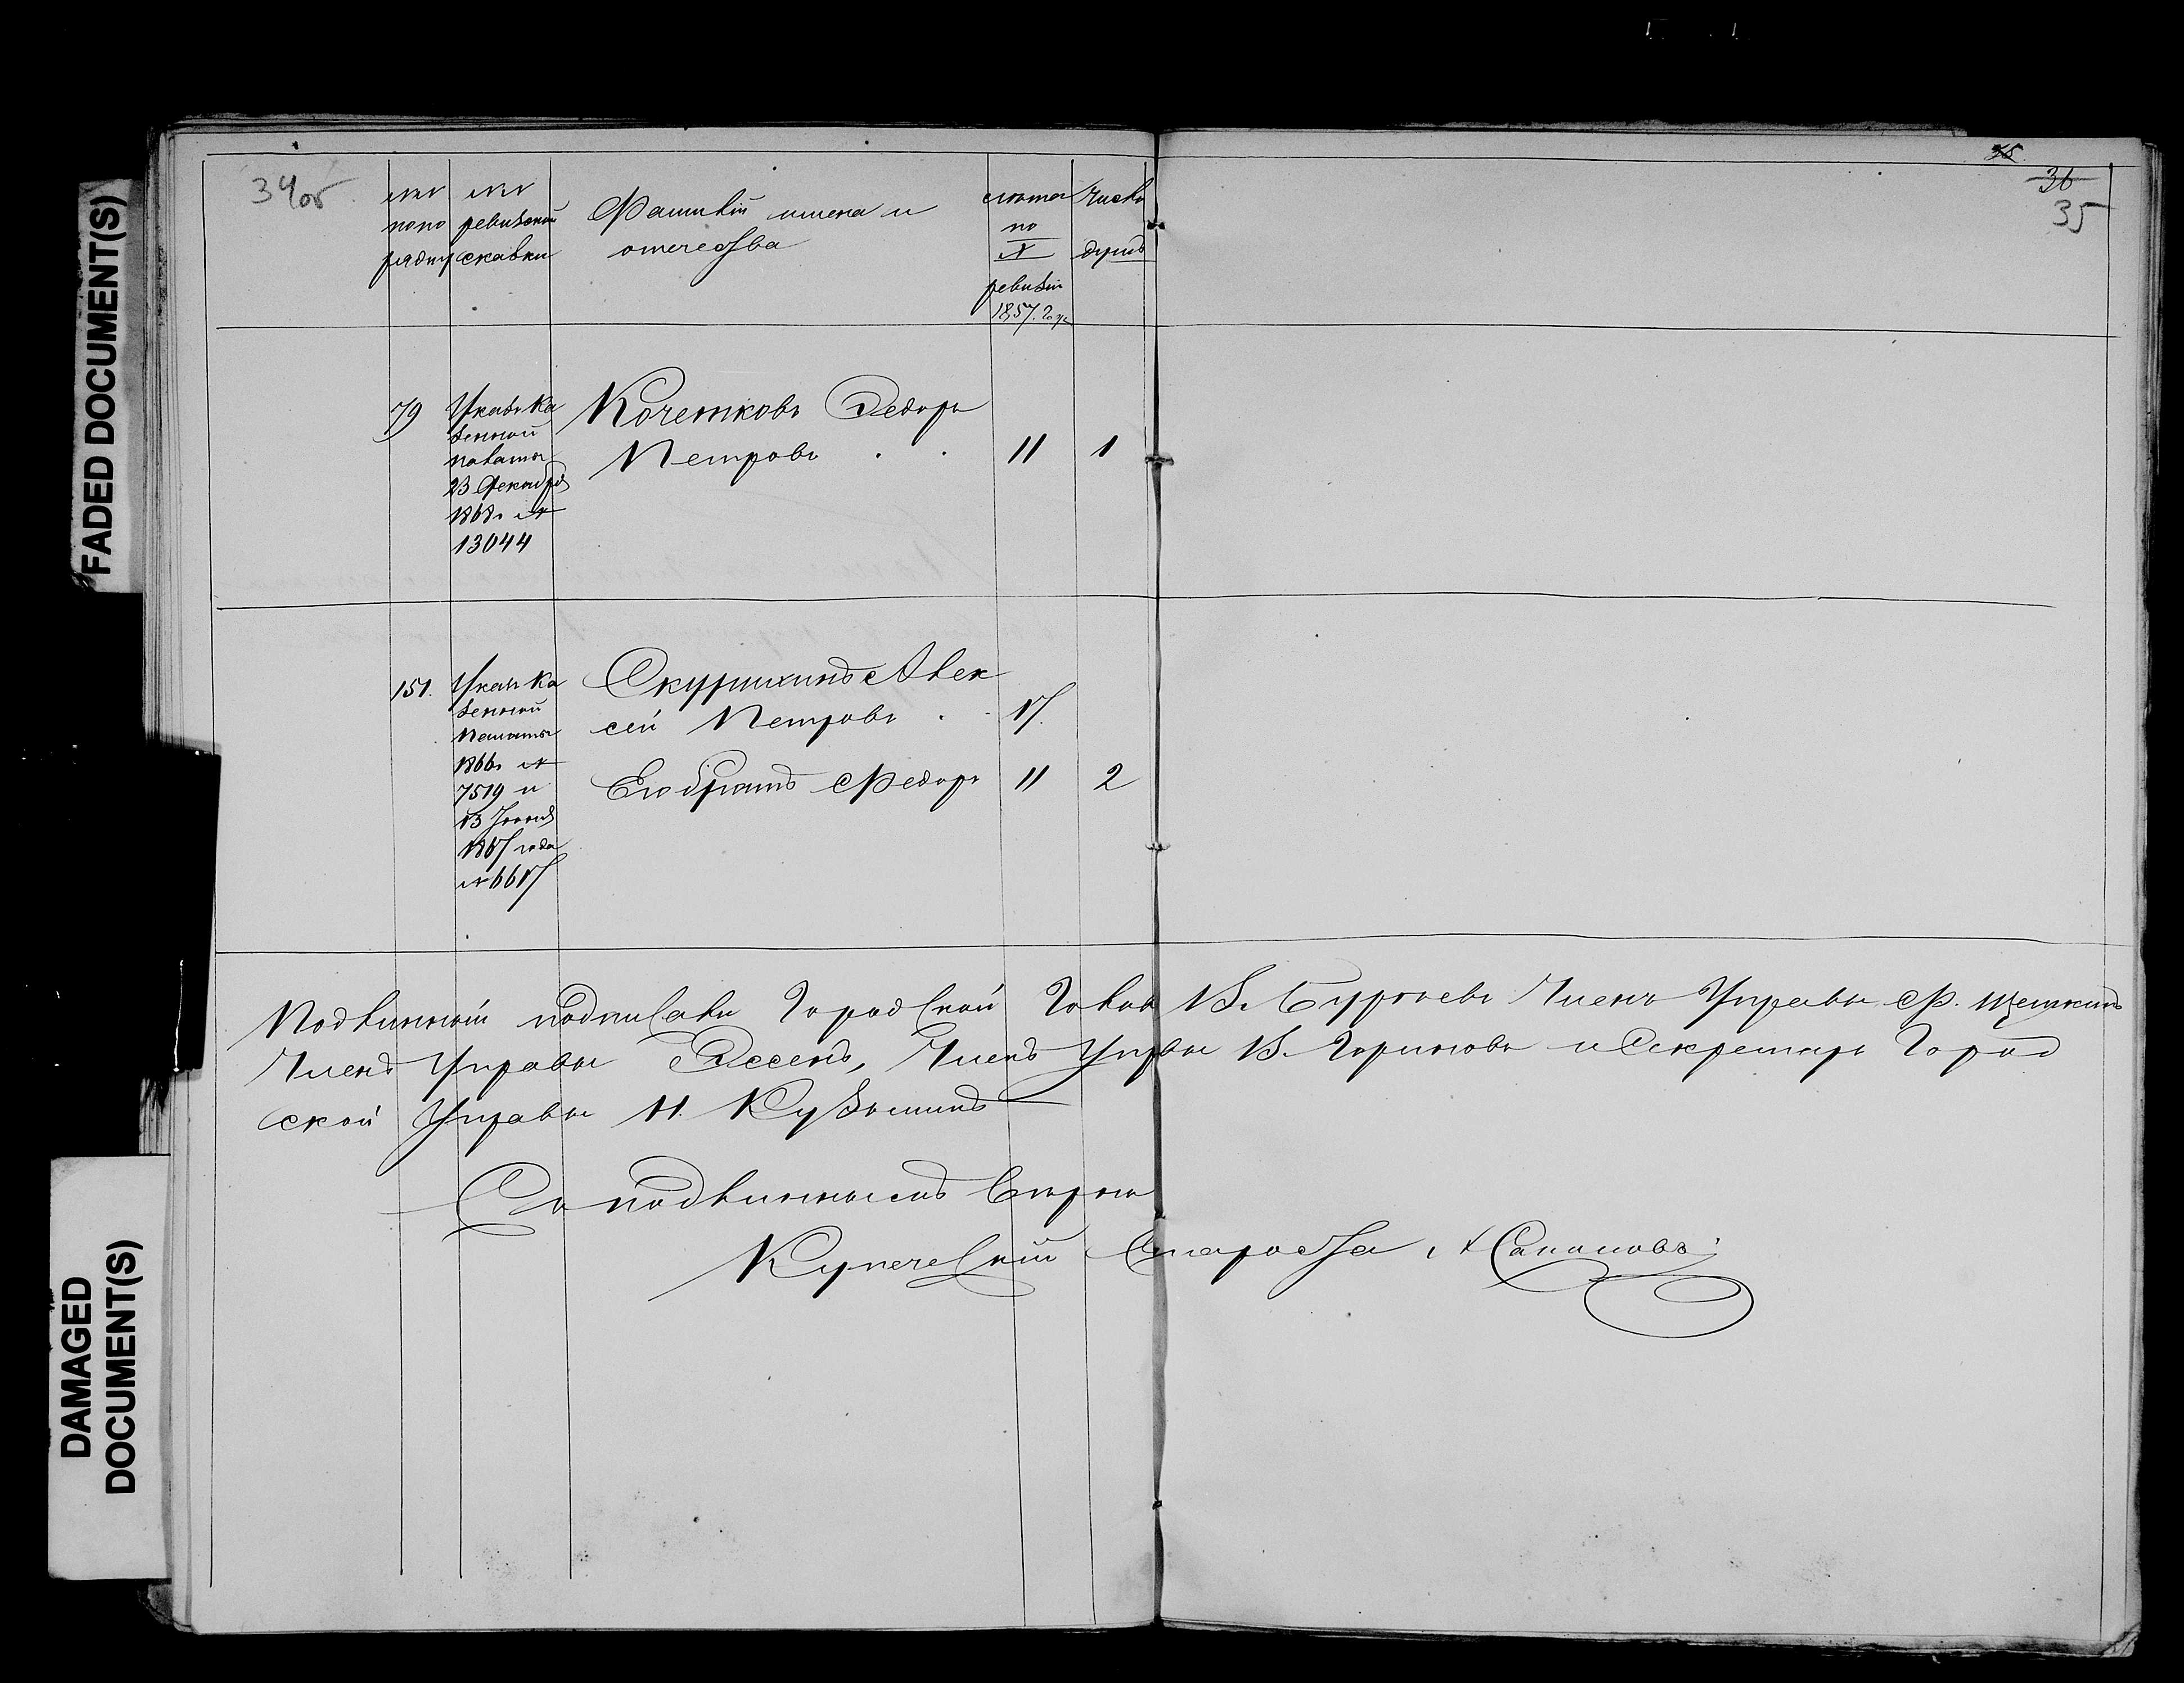 FADED DOCUMENT(S)
DAMAGED
DOCUMENT(S)
34об.
№№
попо
рядку
№№
ревизской
сказки
Фамилiи имена и
отчества
лѣта
по
X
ревизiи
1857. году
Число
душъ
35
36
35
79
Указъ Ка
зенной
палаты
23 Декабря
1868г. №
13044
Кочетковъ Федоръ
Петровъ . . 11 1
151.
Указъ Ка
зенной
Палаты
1866г. №
7519 и
13 Iюня
1867 года
№ 6617
Скурихинъ Алек
сей Петровъ . . 17.
Его братъ Федоръ 11 2
Подлинный подписали Городской Голова В. Бурчевъ Членъ Управы Ф. Щеткинъ
Членъ Управы Эссенъ, Членъ Упрвы В. Гориновъ и Секретарь Город
ской Управы Н. Кузьминъ
Съ подлиннымъ вѣрно
Купеческiй Староста А Сапоновъ